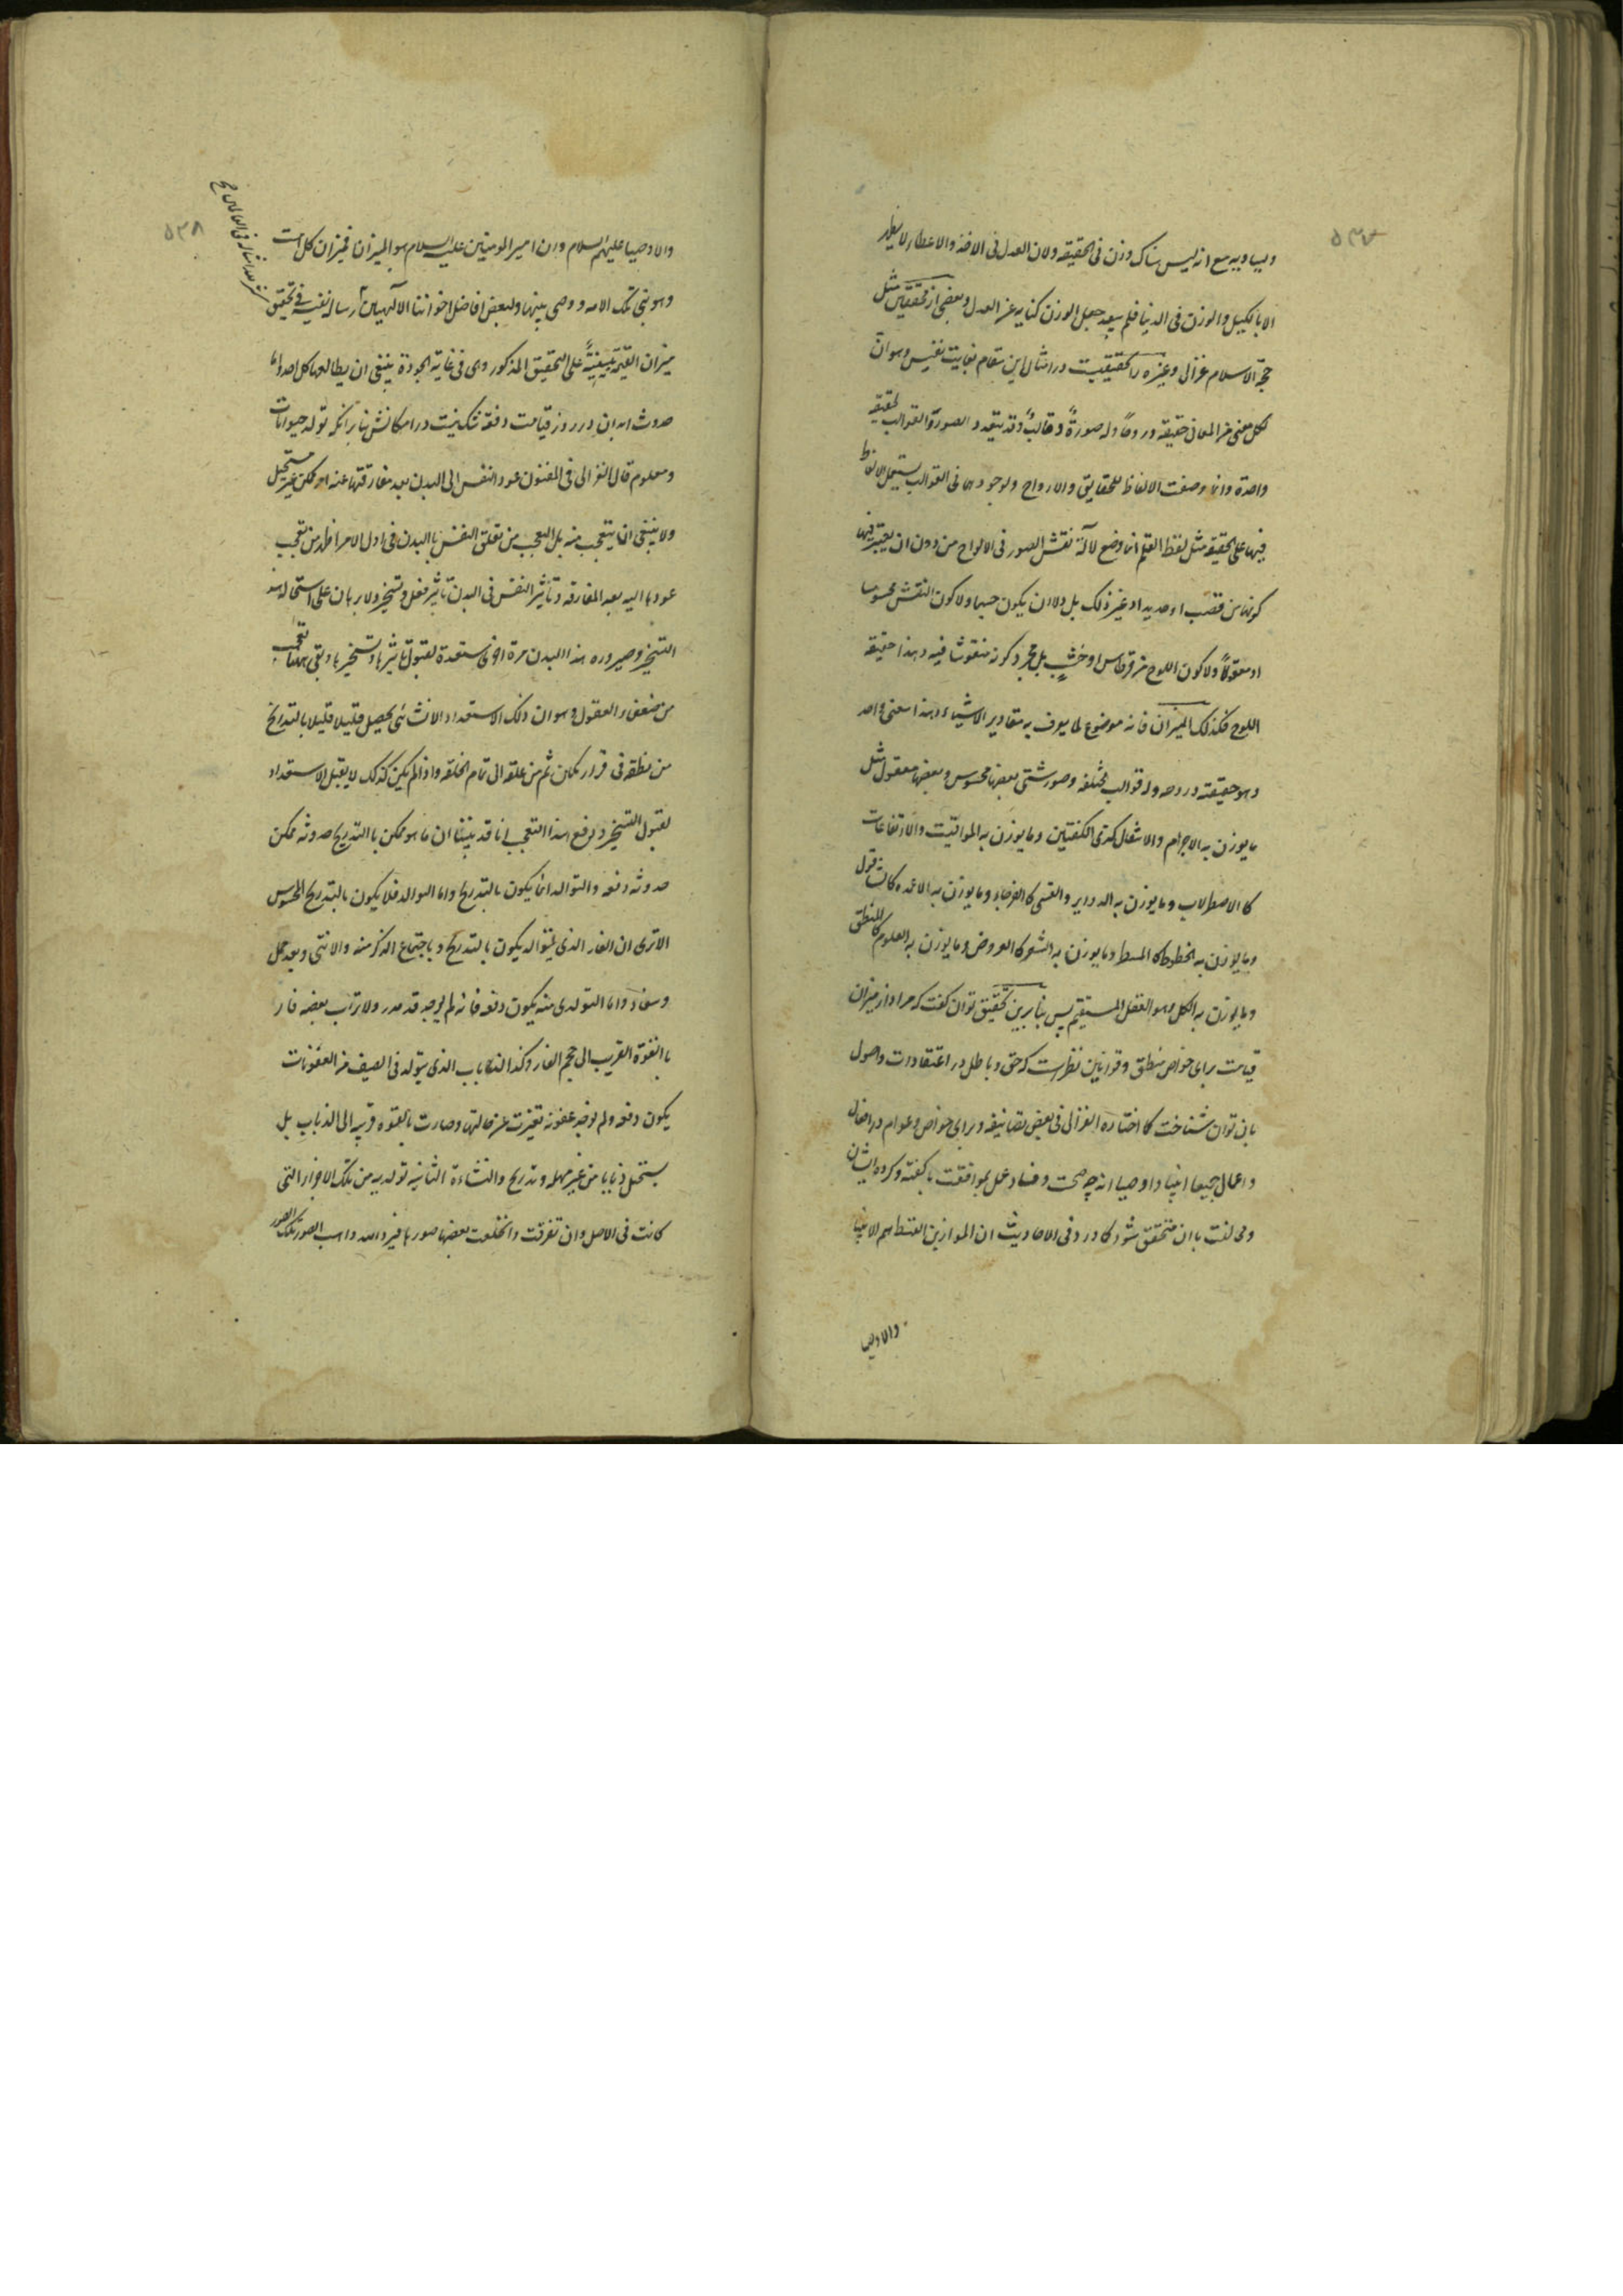 ۵۳۷
ویساویه مع انه لیس هناک وزن فی الحقیقه ولان العدل فی الاخذ والاعطاء لا یظهر
الا بالکیل والوزن فی الدنیا فلم یبعد جعل الوزن کنایه عن العدل وبعضی از محققین مثل
حجة الاسلام غزالی وغیره را تحقیقیست در امثال این مقام بغایت نفیس وهو ان
لکل معنی من المعانی حقیقه وروحاً وله صورةً وقالباً وقد یتعدد الصورة والقوالب لحقیقه
واحدة وانما وضعت الالفاظ للحقایق والارواح ولوجودها فی القوالب یستعمل الالفاظ
فیها علی الحقیقه مثل لفظ القلم انما وضع لآلة نقش الصور فی الالواح من دون ان یعتبر فیها
کونها من قصب او حدید او غیر ذلک بل ولا ان یکون جسما ولا کون النقش محسوسا
او معقولاً ولا کون اللوح من قرطاس او خشبٍ بل مجرد کونه منقوشا فیه وهذا حقیقه
اللوح فکذلک المیزان فانه موضوع لما یعرف به مقادیر الاشیاء وهذا معنی واحد
وهو حقیقته وروحه وله قوالب مختلفه وصور شتی بعضها محسوس وبعضها معقول مثل
ما یوزن به الاجرام والاثقال کذی الکفتین وما یوزن به المواقیت والارتفاعات
کالاصطرلاب وما یوزن به الدوایر والقسی کالفرجار وما یوزن به الاعمده کالشاقول
وما یوزن به الخطوط کالمسطر وما یوزن به الشعر کالعروض وما یوزن به العلوم کالمنطق
وما یوزن به الکل وهو العقل المستقیم پس بنا برین تحقیق توان گفت که مراد از میزان
قیامت برای خواص منطق وقوانین نظرست که حق و باطل در اعتقادات واصول
بان توان شناخت کما اختاره الغزالی فی بعض تصانیفه و برای خواص وعوام در افعال
واعمال جمیعا انبیا واوصیا اند چه صحت و فساد عمل بموافقت با گفته و کرده ایشان
ومخالفت با ان متحقق شود کما ورد فی الاحادیث ان الموازین القسط هم الانبیا
والاوصیا
۵۳۸
والاوصیا علیهم السلام وان امیر المومنین علیه السلام هو المیزان فمیزان کل امت
وهو نبی تلک الامه و وصی نبیها ولبعض افاضل اخواننا الالهیین رساله نفیسه فی تحقیق
میزان القیمه مبنیةً علی التحقیق المذکور وهی فی غایة الجودة ینبغی ان یطالعها کل احد واما
حدوث ابدان در روز قیامت دفعة شک نیست در امکانش بنا بر انکه تولد حیوانات
ومعلوم قال الغزالی فی المضنون عود النفس الی البدن بعد مفارقتها عنه امر ممکن غیر مستحیل
ولا ینبغی ان یتعجب منه بل التعجب من تعلق النفس بالبدن فی اول الامر اظهر من تعجب
عودها الیه بعد المفارقه وتاثیر النفس فی البدن تاثیر فعل وتسخیر ولا برهان علی استحاله هذا
التسخیر وصیروره هذا البدن مرة اخری مستعدة لقبول تاثیرها وتسخیرها وبقی ههنا تعجب
من ضعفاء العقول وهو ان ذلک الاستعداد الانسانی یحصل قلیلا قلیلا بالتدریج
من نطفه فی قرار مکان ثم من علقه الی تمام الخلقه واذا لم یکن کذلک لا یقبل الاستعداد
لقبول التسخیر ودفع هذا التعجب انا قد بینا ان ما هو ممکن بالتدریج حدوثه ممکن
حدوثه دفعه والتوالد انما یکون بالتدریج واما التولد فلا یکون بالتدریج المحسوس
الا تری ان الفار الذی یتوالد یکون بالتدریج و باجتماع الذکر منه والانثی وبعد حمل
وسفاد واما التولدی منه یکون دفعه فانه لم یوجد قط مدر ولا تراب بعضه فار
بالقوة القریب الی حجم الفار وکذا الذباب الذی یتولد فی الصیف من العفونات
یکون دفعه ولم یوجد عفونه تغیرت عن حالتها وصارت بالقوه قریبه الی الذباب بل
یستحیل ذبابا من غیر مهله وتدریج والنشاءة الثانیه تولدیه من تلک الاجزاء التی
کانت فی الاصل وان تفرقت وانخلعت بعضها صورها فیرد الله واهب الصور تلک الصور